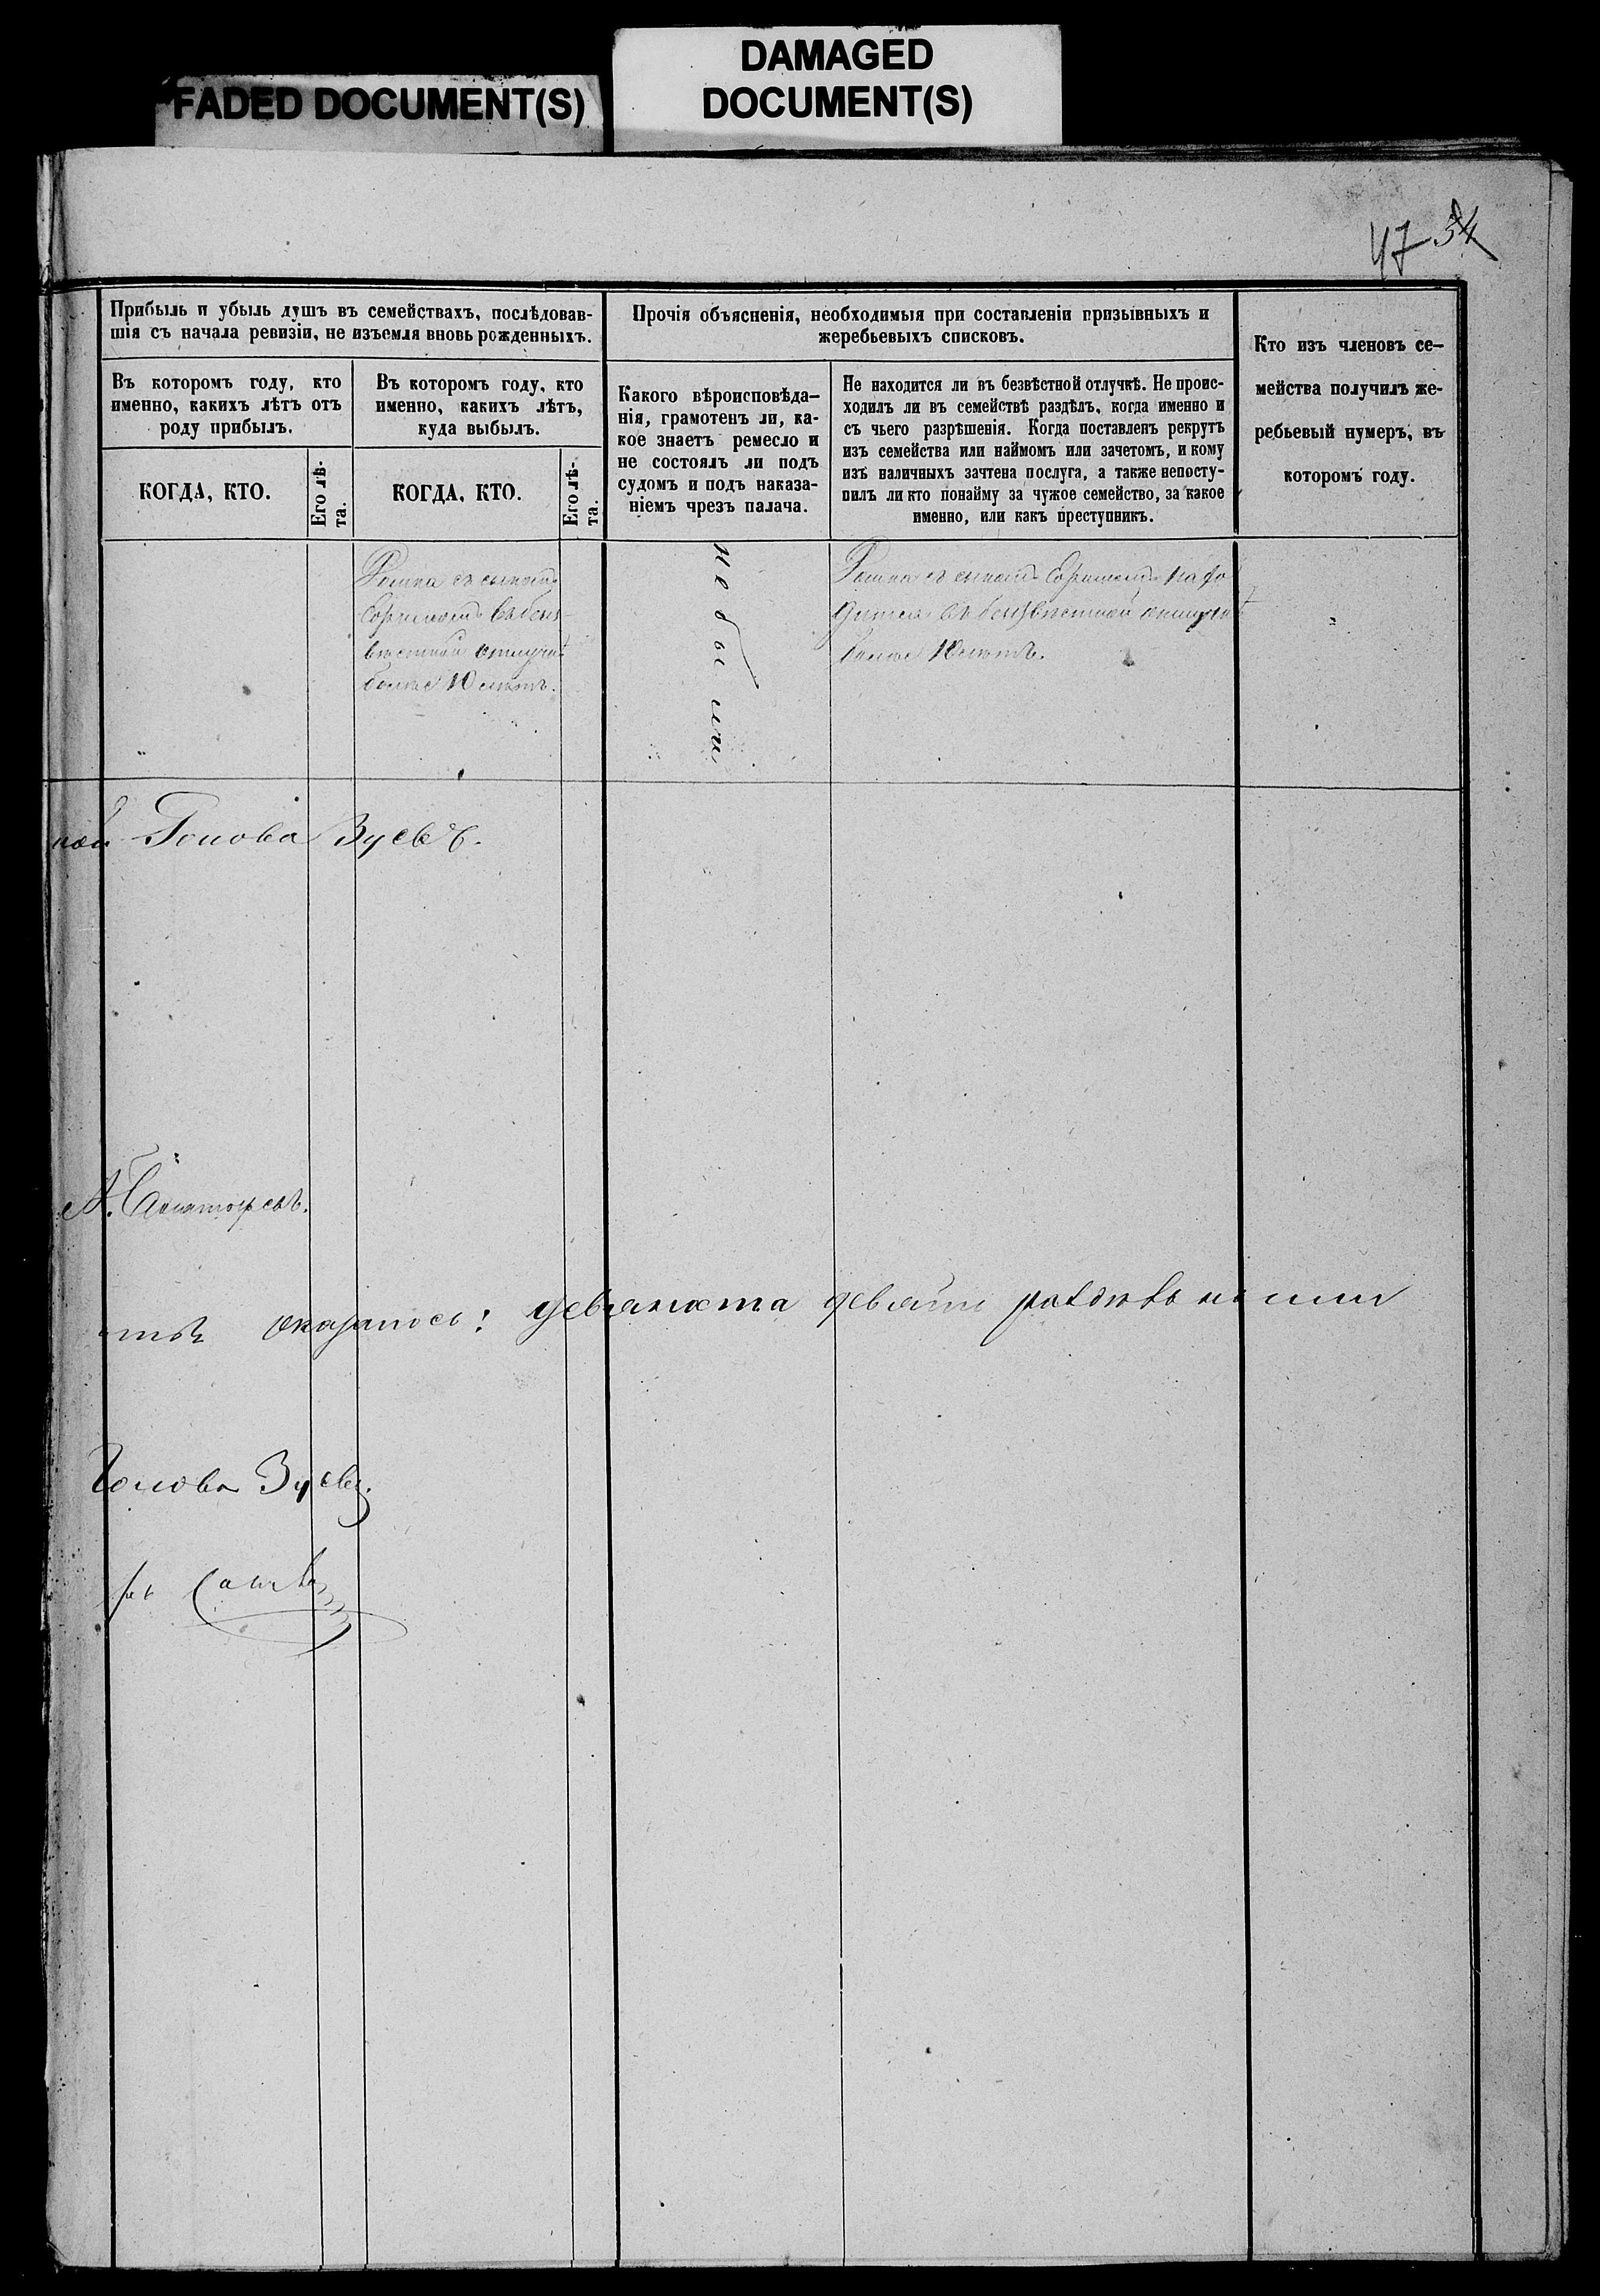 FADED DOCUMENT(S)
DAMAGED
DOCUMENT(S)
47 34
Прибыль и убыль душъ въ семействахъ, послѣдовав-
шія съ начала ревизіи, не изъемля вновь рожденныхъ.
Прочія объясненія, необходимыя при составленіи призывныхъ и
жеребьевыхъ списковъ.
Кто изъ членовъ се-
мейства получилъ же-
ребьевый нумеръ, въ
которомъ году.
Въ которомъ году, кто
именно, какихъ лѣтъ отъ
роду прибылъ.
Въ которомъ году, кто
именно, какихъ лѣтъ,
куда выбылъ.
Какого вѣроисповѣда-
нія, грамотенъ ли, ка-
кое знаетъ ремесло и
не состоялъ ли подъ
судомъ и подъ наказа-
ніемъ чрезъ палача.
Не находится ли въ безвѣстной отлучкѣ. Не проис-
ходилъ ли въ семействѣ раздѣлъ, когда именно и
съ чьего разрѣшенія. Когда поставленъ рекрутъ
изъ семейства или наймомъ или зачетомъ, и кому
изъ наличныхъ зачтена послуга, а также непосту-
пилъ ли кто понайму за чужое семейство, за какое
именно, или какъ преступникъ.
КОГДА, КТО.
Его лѣ-
та.
КОГДА, КТО.
Его лѣ-
та.
съ сыномъ
въ без-
вѣстной отлучкѣ
болѣе 10 лѣтъ.
съ сыномъ нахо
дится въ безвѣстной отлучкѣ
болѣе 10 лѣтъ.
Голова Зуевъ.
А.
оказалось: девяноста девять
Голова Зуевъ.